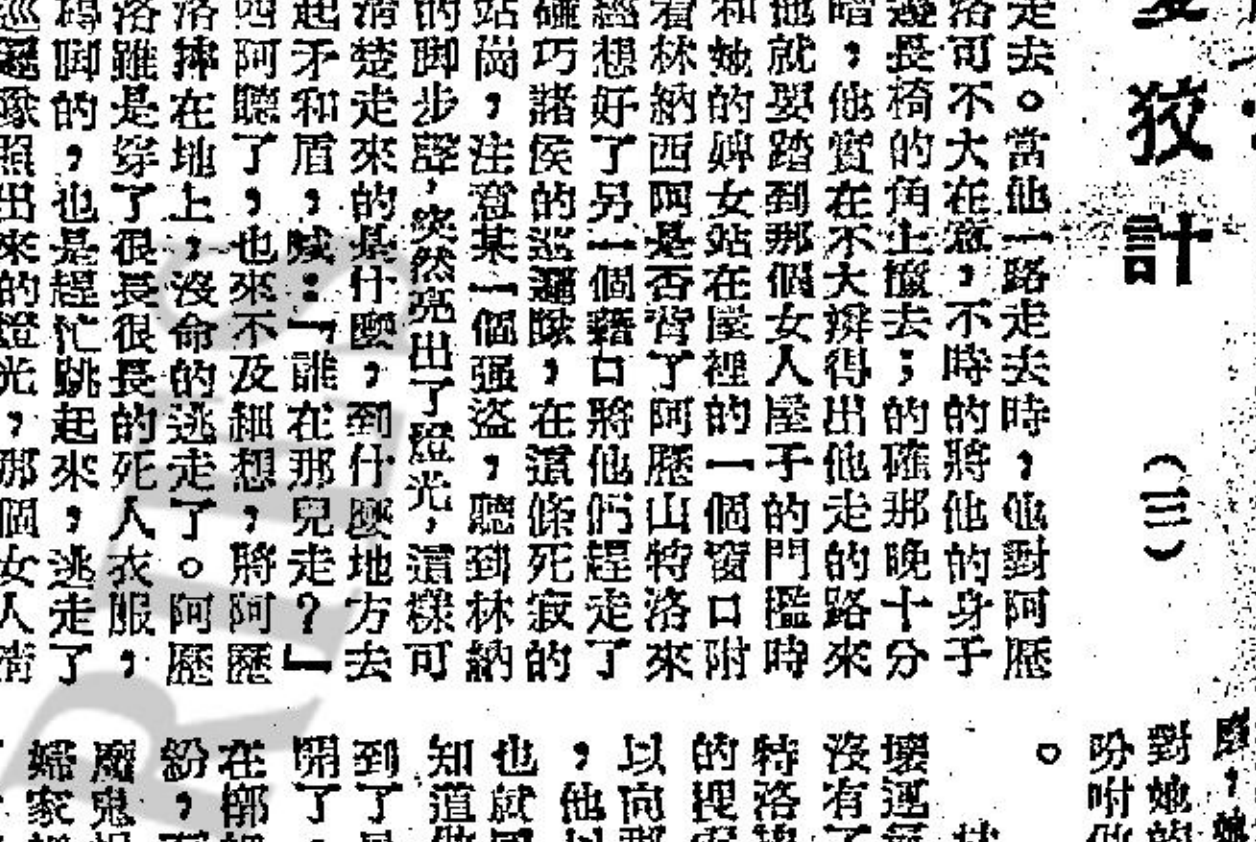 狡計 （三）
走去。當他一路走去時，他對阿歷
洛可不大在意，不時的將他的身子
長椅的角上撞去；的確那晚十分
暗，他實在不大辨得出他走的路來
他就要踏到那個女人屋子的門檻時
和她的婢女站在屋裡的一個窗口附
看林納西阿是否背了阿歷山特洛來
經想好了另一個藉口將他們趕走了
碰巧諸侯的巡邏隊，在這條死寂的
站崗，注意某一個强盜，聽到林納
的脚步聲，突然亮出了燈光，這樣可
清楚走來的是什麼，到什麼地方去
起矛和盾，喊：「誰在那兒走？」
西阿聽了，也來不及細想，將阿歷
洛摔在地上，沒命的逃走了。阿歷
洛雖是穿了很長很長的死人衣服，
碍脚的，也是趕忙跳起來，逃走了
巡邏隊照出來的燈光，那個女人
對她的
吩咐
。
壞運
沒有了
特洛
的裡
以向那
，他以
也就
知道
到了
開了，
在槨
紛，
魔鬼
婦家